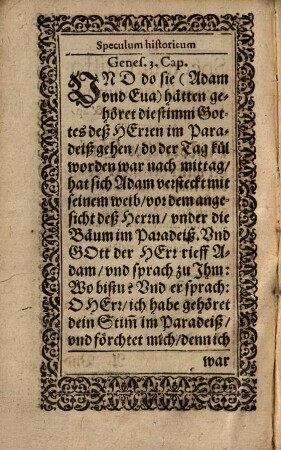 Speculum historicum
Genes. 3. Cap.
VND do sie (Adam
vnd Eua) hätten ge-
höret die stimm Got-
tes deß HErren im Para-
deiß gehen/ do der Tag kül
worden war nach mittag/
hat sich Adam versteckt mit
seinem weib/ vor dem ange-
sicht deß Herrn/ vnder die
Bäum im Paradeiß. Vnd
GOtt der HErr rieff A-
dam/ vnd sprach zu Ihm:
Wo bistu? Vnd er sprach:
O HErr/ ich habe gehöret
dein Stim̃ im Paradeiß/
vnd förchtet mich/ denn ich
war